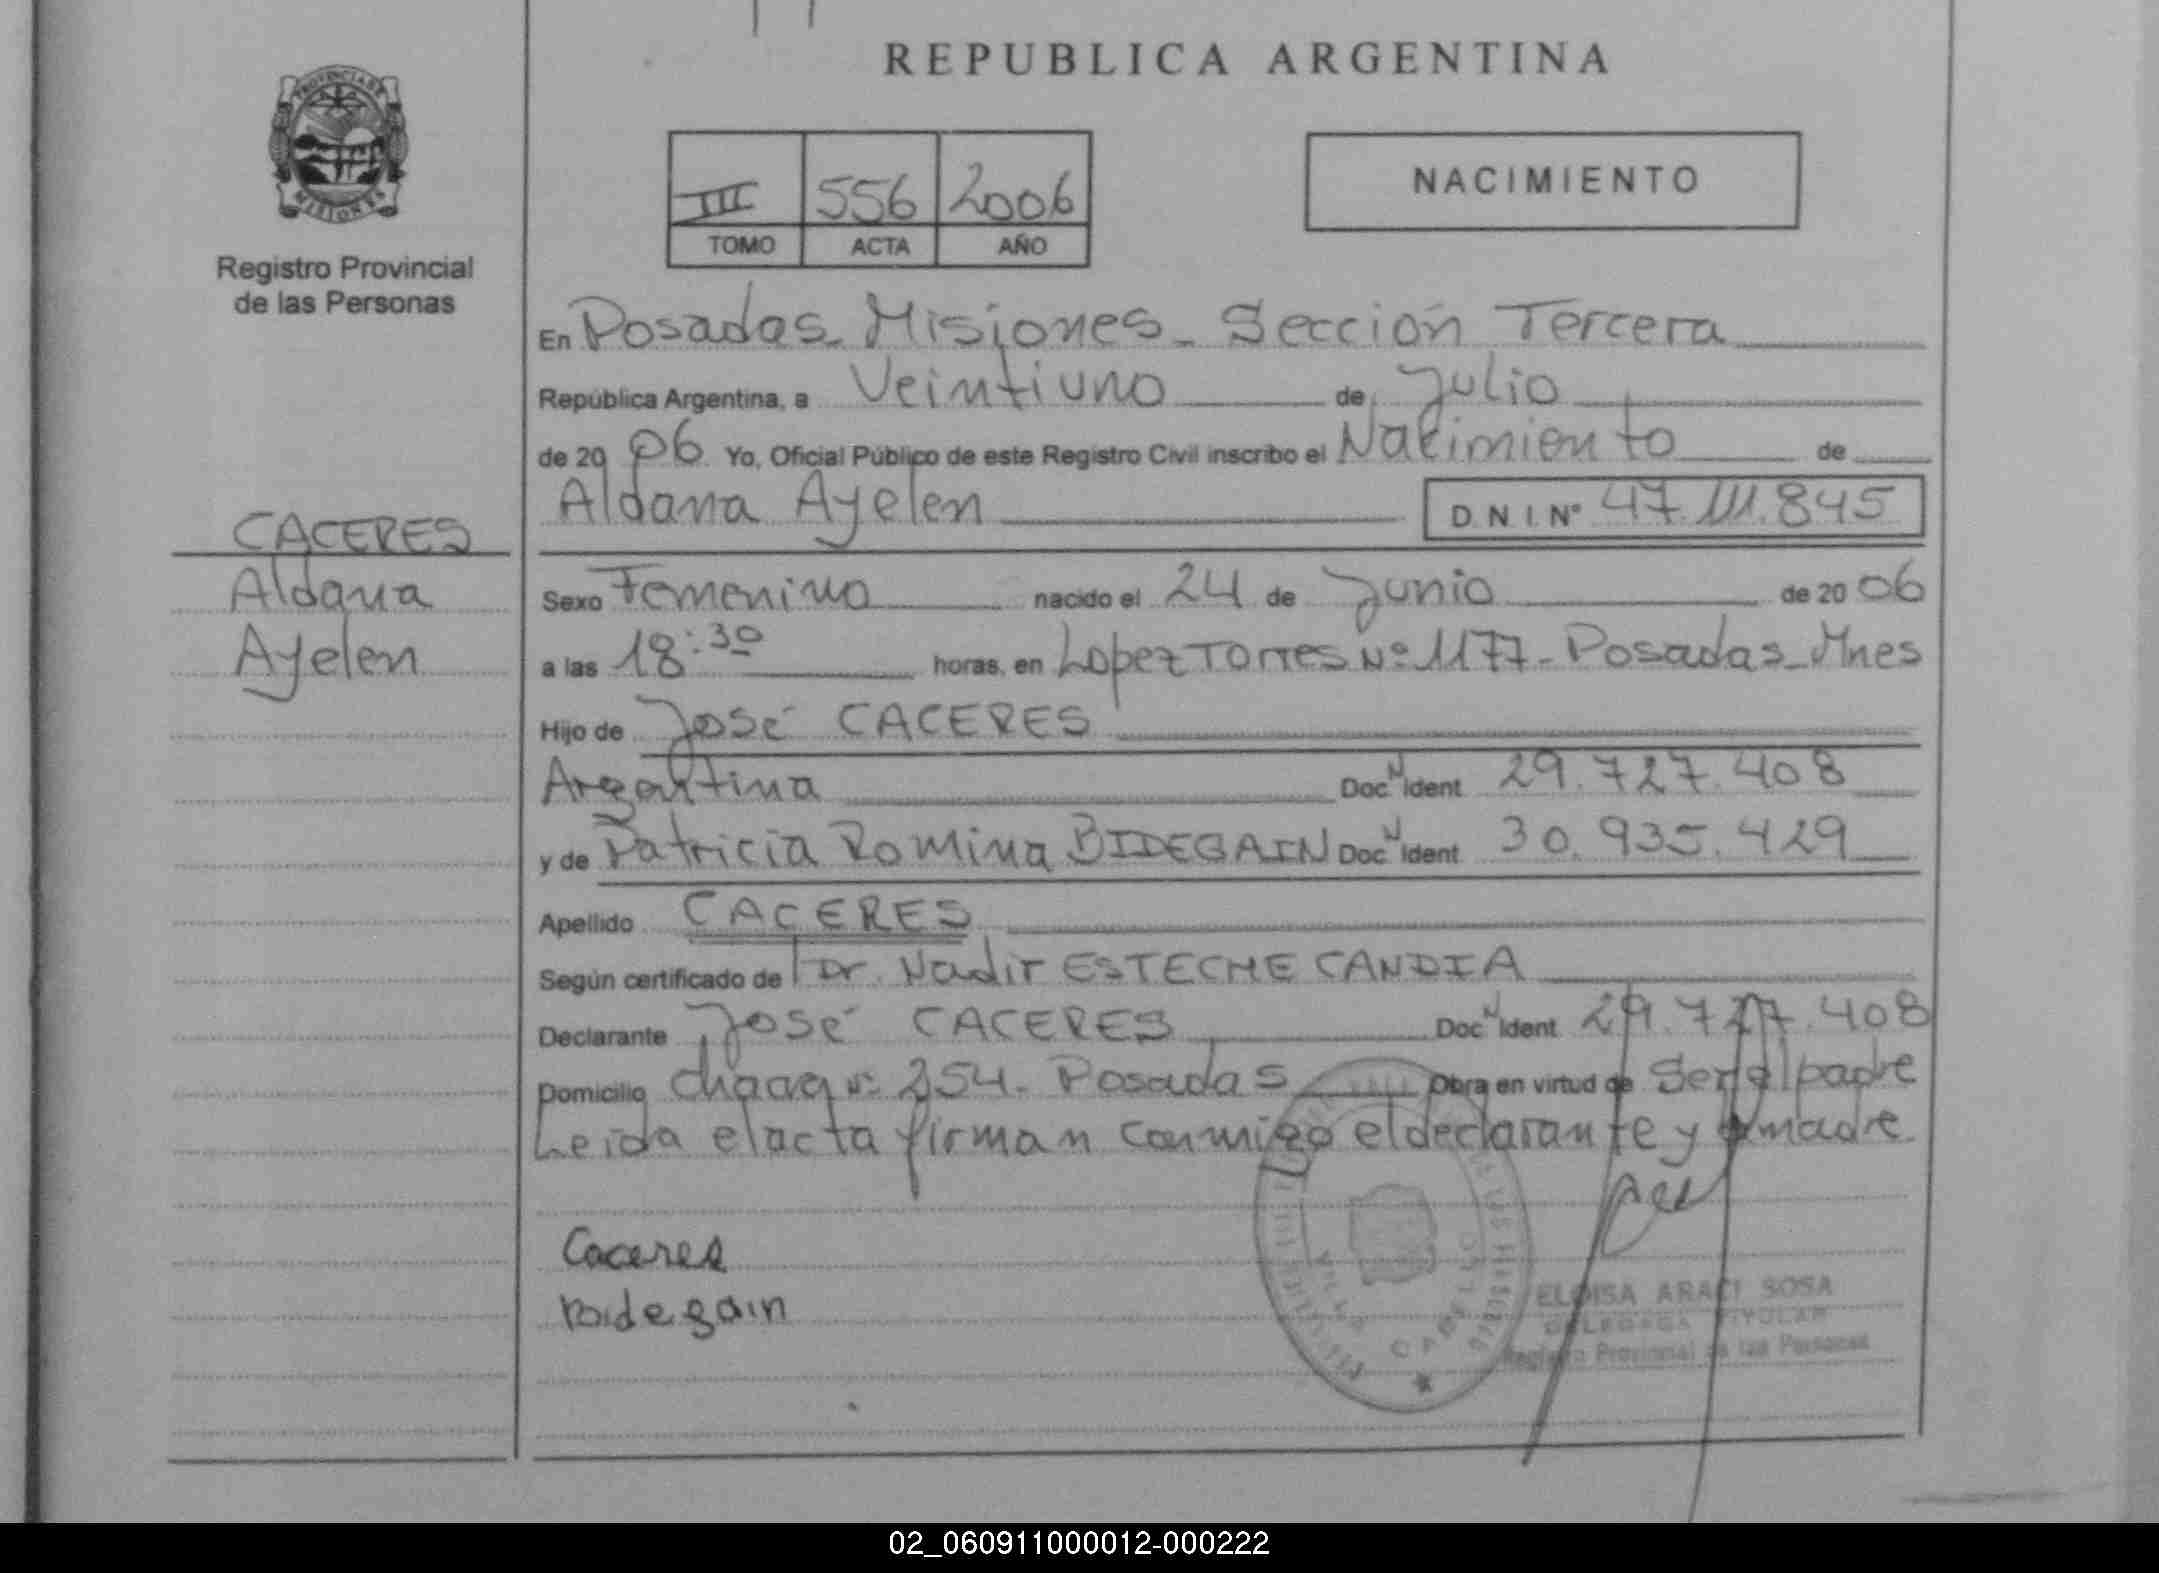 REPUBLICA ARGENTINA
PROVINCIA DE
MISIONES
Registro Provincial
de las Personas
III 556 2006
TOMO ACTA AÑO
NACIMIENTO
En Posadas - Misiones - Sección Tercera
República Argentina, a Veintiuno de Julio
de 2006 Yo, Oficial Público de este Registro Civil inscribo el Nacimiento de
Aldana Ayelen D.N.I. N° 47.111.845
CACERES
Aldana
Ayelen
Sexo Femenino nacido el 24 de Junio de 2006
a las 18:30 horas, en Lopez Torres Nº 1177 - Posadas - Mnes
Hijo de José CACERES
Argentina Doc N Ident 29.727.408
y de Patricia Romina BIDEGAIN Doc N Ident 30.935.429
Apellido CACERES
Según certificado de Dr. Nadir ESTECHE CANDIA
Declarante José CACERES Doc N Ident 29.727.408
Domicilio Nº 254 - Posadas Obra en virtud de Ser el padre
Leida el acta firman conmigo el declarante y madre
Caceres
Bidegain
ELOISA ARACI SOSA
DELEGADA TITULAR
Registro Provincial de las Personas
02_060911000012-000222